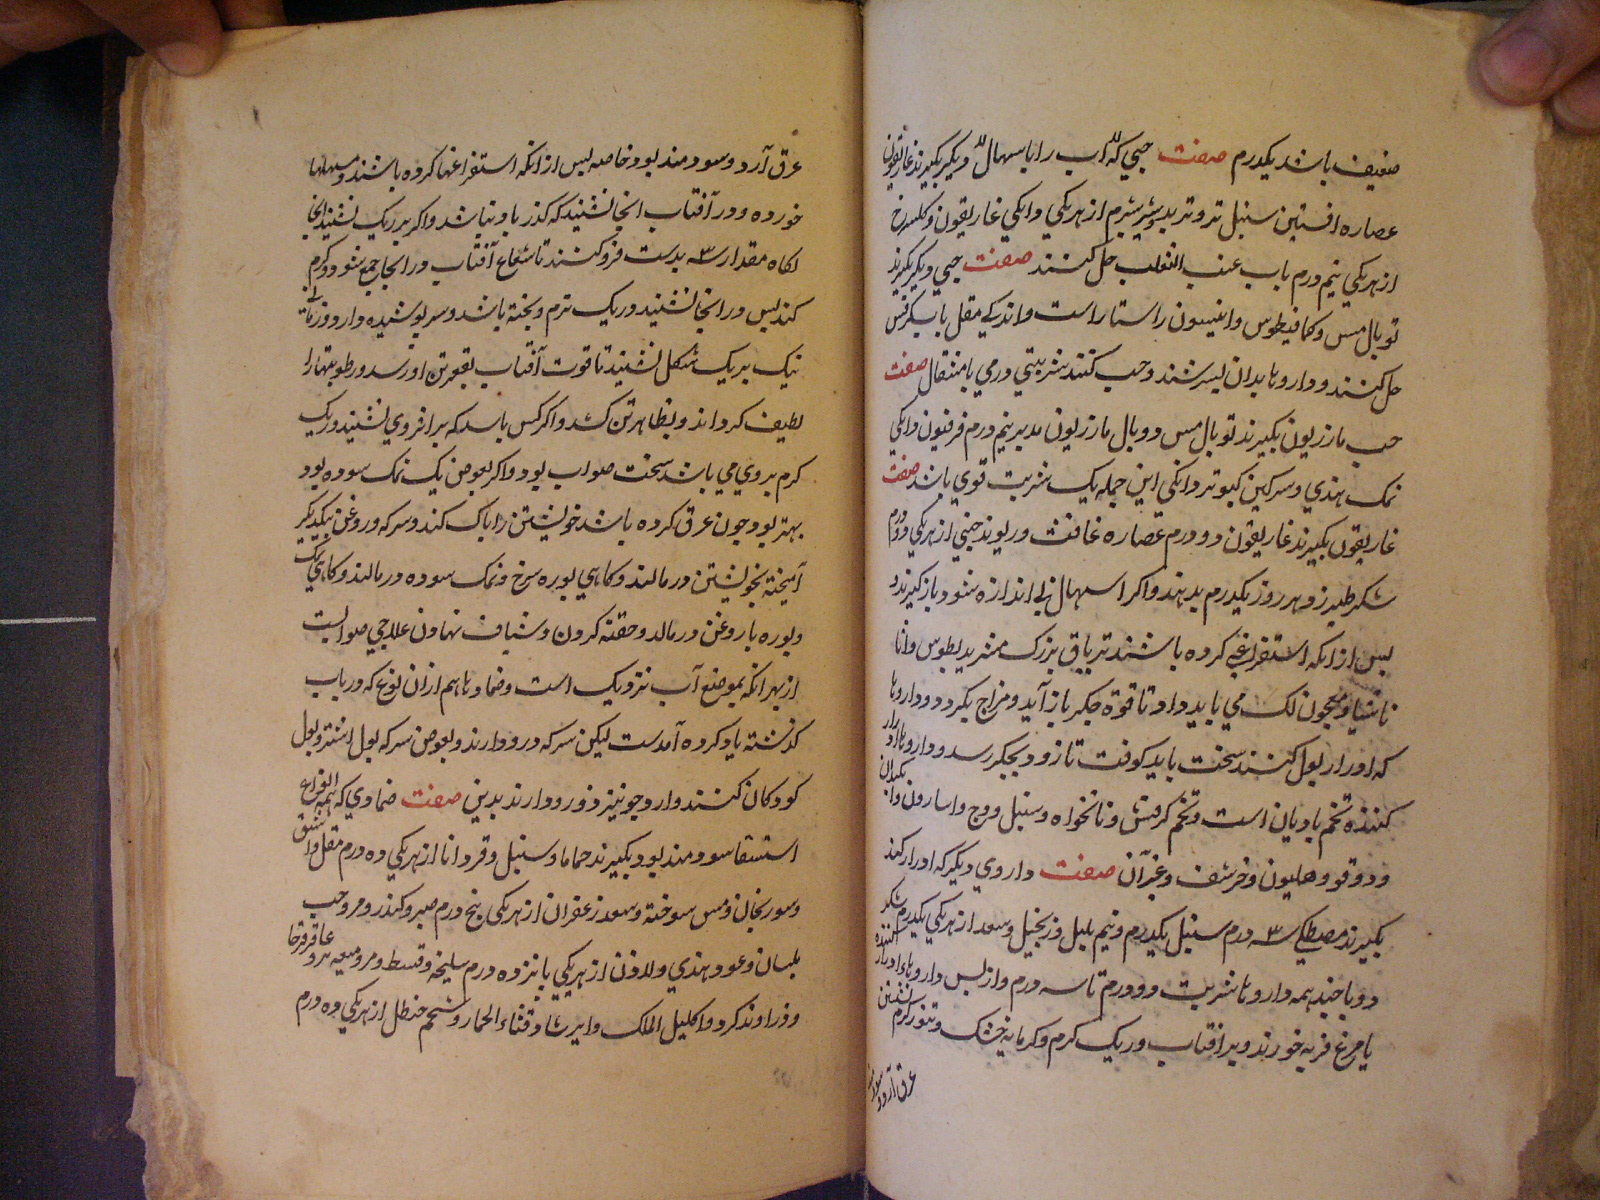 ضعیف باشد یکدرم صفت حبی که آب را باسهال دیگر بگیرند غاریقون
عصاره افسنتین سنبل تربد شبرم از هر یکی دانکی غاریقون و کلسرخ
از هر یکی نیم درم باب عنب الثعلب حل کنند صفت حبی دیگر بگیرند
توبال مس و کمافیطوس و انیسون راستا راست و اندکی مقل باب کرفس
حل کنند و داروها بدان بسرشند و حب کنند شربتی درمی یا مثقال صفت
حب مازریون بگیرند توبال مس مازریون مدبر نیم درم فرفیون دانکی
نمک هندی و سرکین کبوتر دانکی این جمله یک شربت قوی باشد صفت
غاریقون بگیرند غاریقون دو درم عصاره غافث و ریوند چینی از هر یکی دو درم
شکر طبرزد هر روز یکدرم بدهند و اگر اسهال بی اندازه شود باز گیرند و
پس از انکه استفراغی کرده باشند تریاق بزرک مثرودیطوس و
معجون لک می باید داد تا قوة جکر باز آید و مزاج بگردد و داروها
که ادرار بول کنند سخت باید کوفت تا زود بجکر رسد و داروها ادرار
کننده تخم بادیان است و تخم کرفس و نانخواه و سنبل و وج و اسارون
و دوقو و هلیون و خرشف و غیر آن صفت داروی دیگر که ادرار کند
بگیرند مصطکی سه درم سنبل یکدرم و نیم پلپل و زنجبیل و سعد از هر یکی یکدرم شکر
دو باجند همه داروها شربت دو درم تا سه درم و از پس داروهاء ادرار کننده
با مرغ فربه خورند و بر آفتاب و ریک کرم و کرمابه خشک و تنور کرم نشستن
عرق آرد و سود
عرق آرد و سودمند بود خاصه پس از انکه استفراغها کرده باشند و مسهلها
خورده و در آفتاب انجا نشیند که گذر باد نباشد و اگر بر ریک نشیند انجا
نگاه مقدار سه بدست فرو کنند تا شعاع آفتاب در انجا جمع شود و کرم
کند پس در انجا نشیند و ریک نرم و پخته باشد و سر پوشیده دارد و زمانی
نیک بر یک شکل نشیند تا قوت آفتاب بقعر تن او رسد و رطوبتها را
لطیف کرداند و بظاهر تن کشد و اگر کس باشد که برابر وی نشیند و ریک
کرم بر وی می پاشد سخت صواب بود و اگر بعوض یک نمک سوده بود
بهتر بود چون عرق کرده باشد خویشتن را پاک کند و سرکه و روغن بیکدیگر
آمیخته بخویشتن در مالند و کاهی بوره سرخ و نمک سوده در مالند و کاهی نمک
و بوره با روغن در مالد و حقنه کردن و شیاف نهادن علاجی صوابست
از بهر انکه بموضع آب نزدیک است و ضمادها هم از ان نوع که در باب
گذشته یاد کرده آمدست لیکن سرکه در و دارند و بعوض سرکه بول اشتر و بول
کودکان کنند و ارد جو نیز دور دارند بدین صفت ضمادی که همه انواع
استسقا سودمند بود بگیرند حماما و سنبل و قردمانا از هر یکی ده درم مقل و اشق
و سورنجان و مس سوخته و سعد و زعفران از هر یکی پنج درم صبر و کندر و مر و حب
بلسان و عود هندی و لادن از هر یکی پانزده درم سلیخه و قسط و مر و میعه عاقرقرحا
و زراوند گرد و اکلیل الملک و ایرسا و قثاء الحمار و شحم حنظل از هر یکی ده درم